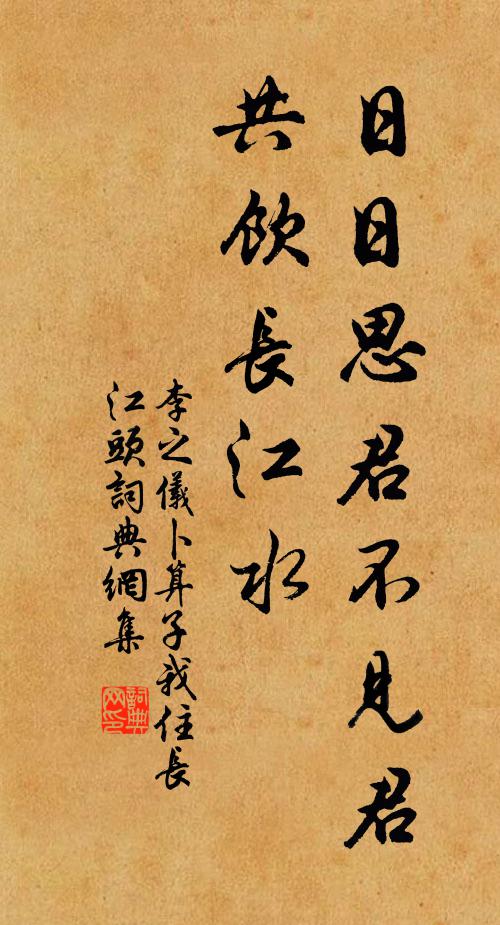 日日思君不見君
共飲長江水
李之儀卜算子我住長
江頭詞典網集
詞典
网印